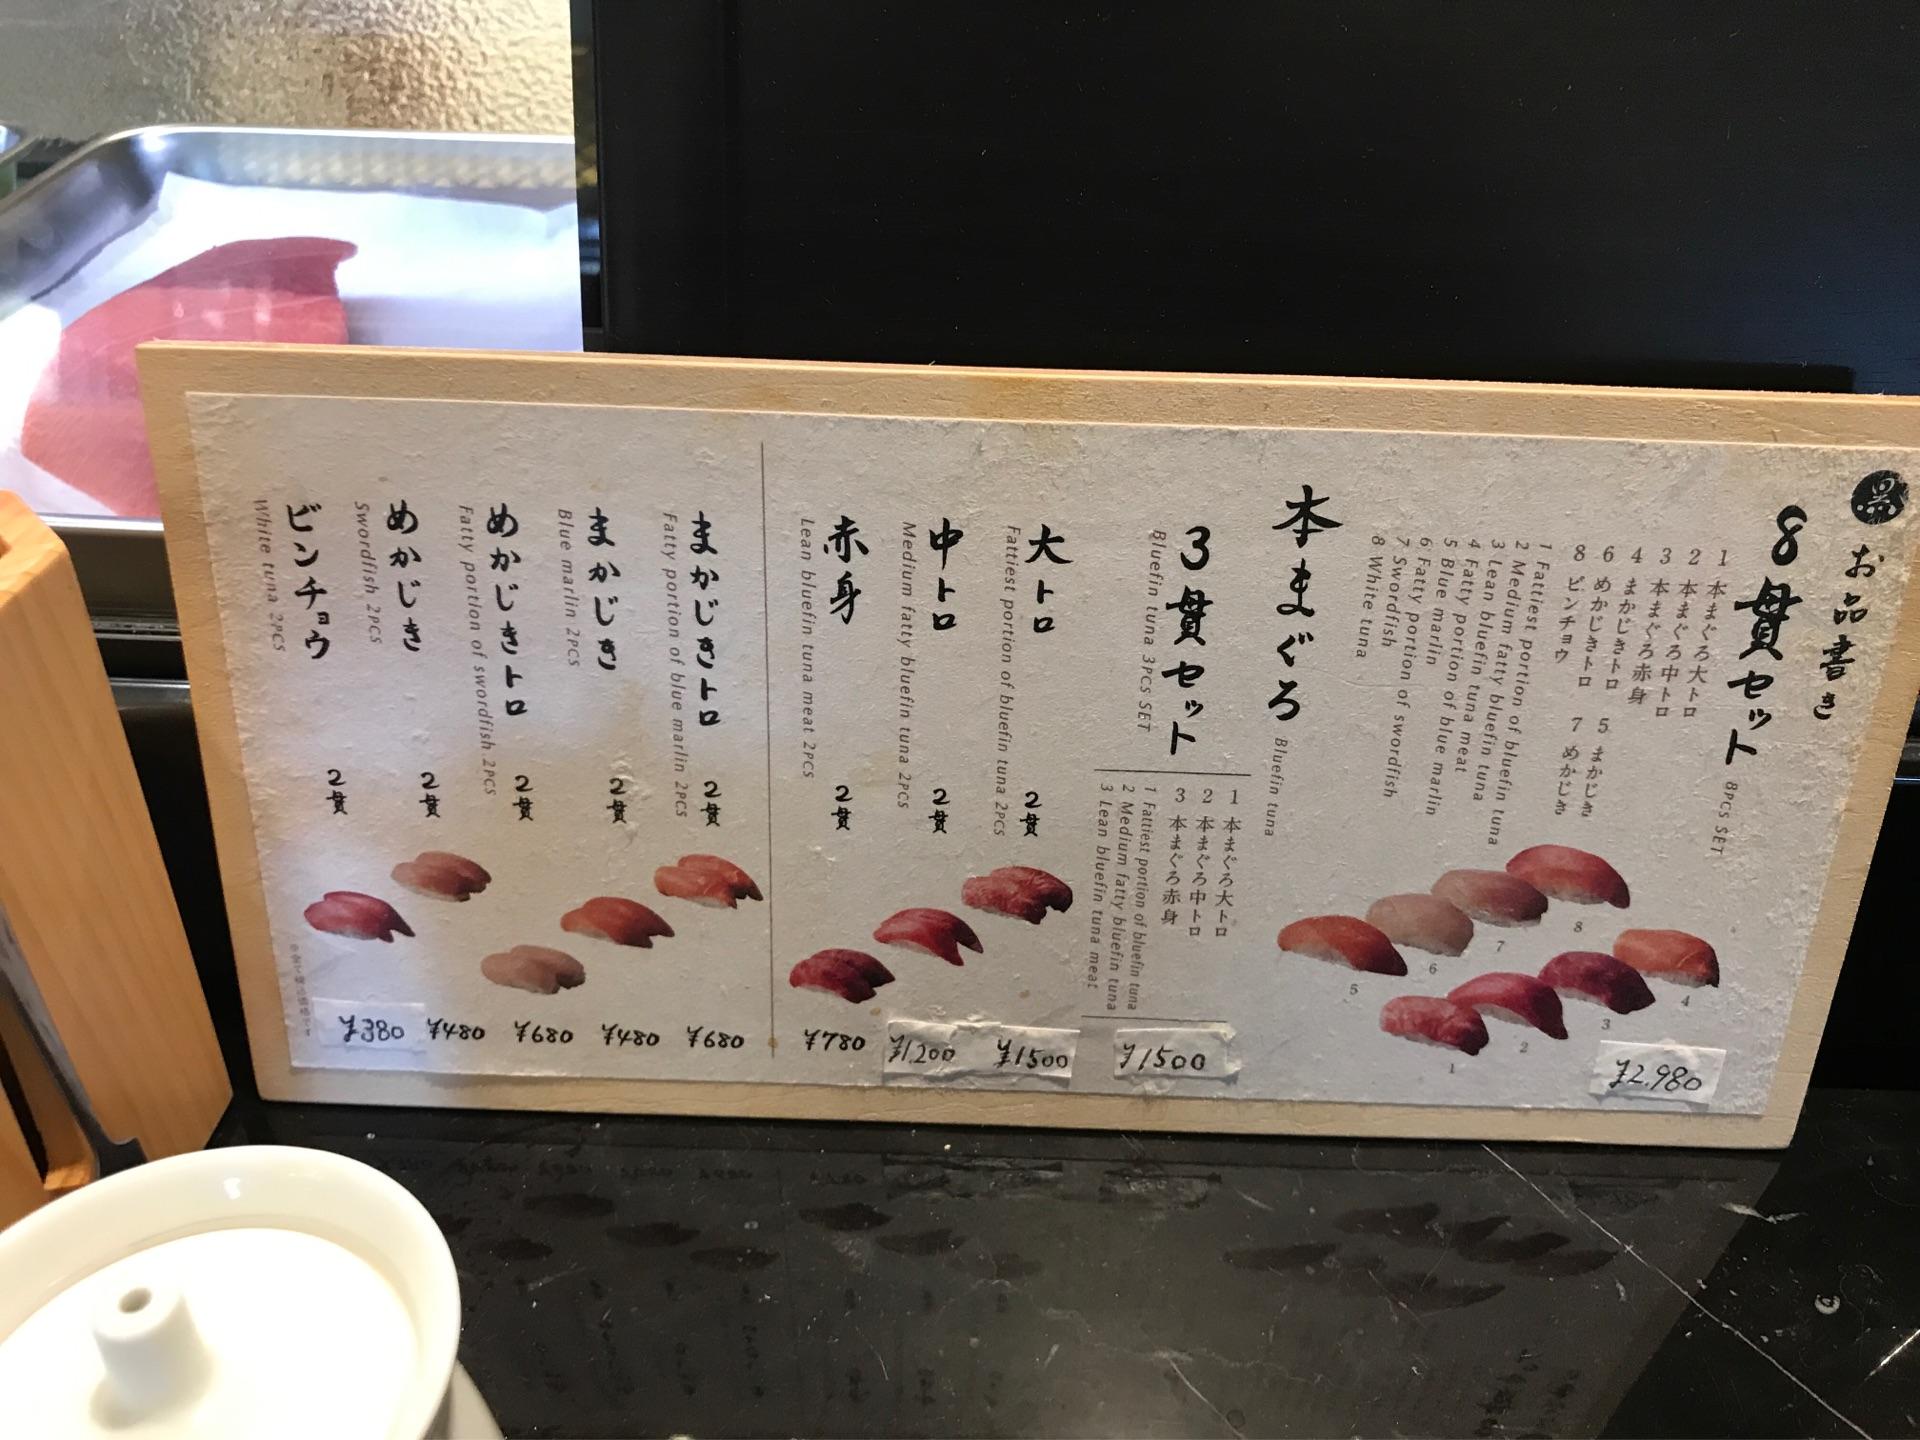 お品書き
8貫セット 8PCS SET
1 本まぐろ大トロ
2 本まぐろ中トロ
3 本まぐろ赤身
4 まかじきトロ 5 まかじき
6 めかじきトロ 7 めかじき
8 ビンチョウ
1 Fattiest portion of bluefin tuna
2 Medium fatty bluefin tuna
3 Lean bluefin tuna meat
4 Fatty portion of blue marlin
5 Blue marlin
6 Fatty portion of swordfish
7 Swordfish
8 White tuna
8
7
6
5
4
3
2
1
¥2,980
本まぐろ Bluefin tuna
3貫セット
Bluefin tuna 3PCS SET
1 本まぐろ大トロ
2 本まぐろ中トロ
3 本まぐろ赤身
1 Fattiest portion of bluefin tuna
2 Medium fatty bluefin tuna
3 Lean bluefin tuna meat
¥1500
大トロ 2貫
Fattiest portion of bluefin tuna 2PCS
¥1500
中トロ 2貫
Medium fatty bluefin tuna 2PCS
¥1,200
赤身 2貫
Lean bluefin tuna meat 2PCS
¥780
まかじきトロ 2貫
Fatty portion of blue marlin 2PCS
¥680
まかじき 2貫
Blue marlin 2PCS
¥480
めかじきトロ 2貫
Fatty portion of swordfish 2PCS
¥680
めかじき 2貫
Swordfish 2PCS
¥480
ビンチョウ 2貫
White tuna 2PCS
¥380